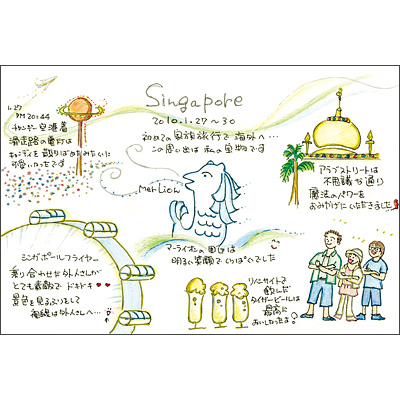 Singapore
2010.1.27〜30
初めての家族旅行で海外へ…
この思い出は私の宝物です
1.27
PM 20:44
チャンギー空港着
滑走路の電灯は
キャンディを散りばめたみたいに
可愛いかったです
MerLion
アラブストリートは
不思議な通り
魔法のパワーを
おみやげにいただきました
マーライオンの周辺は
明るい笑顔でいっぱいでした
シンガポールフライヤー
乗り合わせた外人さんが
とても素敵でドキドキ
景色を見るふりをして
視線は外人さんへ…
リバーサイトで
飲んだ
タイガービールは
最高に
おいしかったよ!